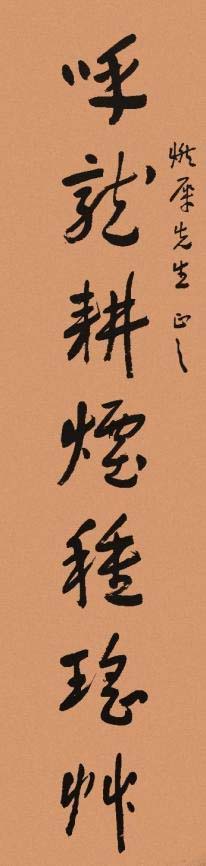 燃犀先生正之
呼龍耕煙種瑤艸